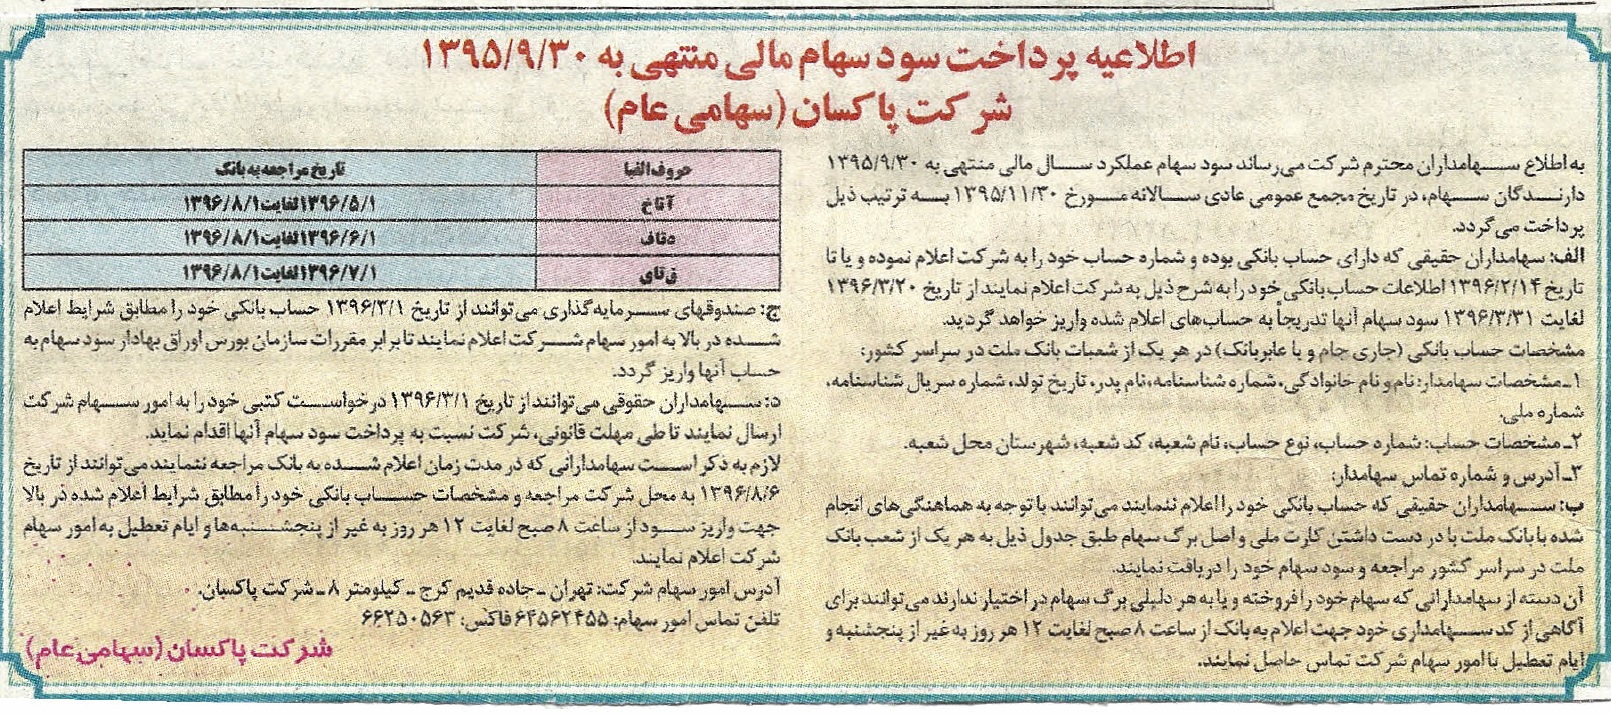 اطلاعیه پرداخت سود سهام مالی منتهی به ۱۳۹۵/۹/۳۰
شرکت پاکسان (سهامی عام)
به اطلاع سهامداران محترم شرکت می‌رساند سود سهام عملکرد سال مالی منتهی به ۱۳۹۵/۹/۳۰
دارندگان سهام، در تاریخ مجمع عمومی عادی سالانه مورخ ۱۳۹۵/۱۱/۳۰ به ترتیب ذیل
پرداخت می‌گردد.
الف: سهامداران حقیقی که دارای حساب بانکی بوده و شماره حساب خود را به شرکت اعلام نموده و یا تا
تاریخ ۱۳۹۶/۲/۱۴ اطلاعات حساب بانکی خود را به شرح ذیل به شرکت اعلام نمایند از تاریخ ۱۳۹۶/۳/۲۰
لغایت ۱۳۹۶/۳/۳۱ سود سهام آنها تدریجاً به حساب‌های اعلام شده واریز خواهد گردید.
مشخصات حساب بانکی (جاری جام و یا عابربانک) در هر یک از شعبات بانک ملت در سراسر کشور:
۱ـ مشخصات سهامدار: نام و نام خانوادگی، شماره شناسنامه، نام پدر، تاریخ تولد، شماره سریال شناسنامه،
شماره ملی.
۲ـ مشخصات حساب: شماره حساب، نوع حساب، نام شعبه، کد شعبه، شهرستان محل شعبه.
۳ـ آدرس و شماره تماس سهامدار:
ب: سهامداران حقیقی که حساب بانکی خود را اعلام ننمایند می‌توانند با توجه به هماهنگی‌های انجام
شده با بانک ملت با در دست داشتن کارت ملی و اصل برگ سهام طبق جدول ذیل به هر یک از شعب بانک
ملت در سراسر کشور مراجعه و سود سهام خود را دریافت نمایند.
آن دسته از سهامدارانی که سهام خود را فروخته و یا به هر دلیلی برگ سهام در اختیار ندارند می‌توانند برای
آگاهی از کد سهامداری خود جهت اعلام به بانک از ساعت ۸ صبح لغایت ۱۲ هر روز به غیر از پنجشنبه و
ایام تعطیل با امور سهام شرکت تماس حاصل نمایند.
حروف الفبا تاریخ مراجعه به بانک
آ تا خ ۱۳۹۶/۵/۱ لغایت ۱۳۹۶/۸/۱
د تا ف ۱۳۹۶/۶/۱ لغایت ۱۳۹۶/۸/۱
ق تا ی ۱۳۹۶/۷/۱ لغایت ۱۳۹۶/۸/۱
ج: صندوقهای سرمایه‌گذاری می‌توانند از تاریخ ۱۳۹۶/۳/۱ حساب بانکی خود را مطابق شرایط اعلام
شده در بالا به امور سهام شرکت اعلام نمایند تا برابر مقررات سازمان بورس اوراق بهادار سود سهام به
حساب آنها واریز گردد.
د: سهامداران حقوقی می‌توانند از تاریخ ۱۳۹۶/۳/۱ درخواست کتبی خود را به امور سهام شرکت
ارسال نمایند تا طی مهلت قانونی، شرکت نسبت به پرداخت سود سهام آنها اقدام نماید.
لازم به ذکر است سهامدارانی که در مدت زمان اعلام شده به بانک مراجعه ننمایند می‌توانند از تاریخ
۱۳۹۶/۸/۶ به محل شرکت مراجعه و مشخصات حساب بانکی خود را مطابق شرایط اعلام شده در بالا
جهت واریز سود از ساعت ۸ صبح لغایت ۱۲ هر روز به غیر از پنجشنبه‌ها و ایام تعطیل به امور سهام
شرکت اعلام نمایند.
آدرس امور سهام شرکت: تهران ـ جاده قدیم کرج ـ کیلومتر ۸ ـ شرکت پاکسان.
تلفن تماس امور سهام: ۶۴۵۶۲۴۵۵ فاکس: ۶۶۲۵۰۵۶۳
شرکت پاکسان (سهامی عام)